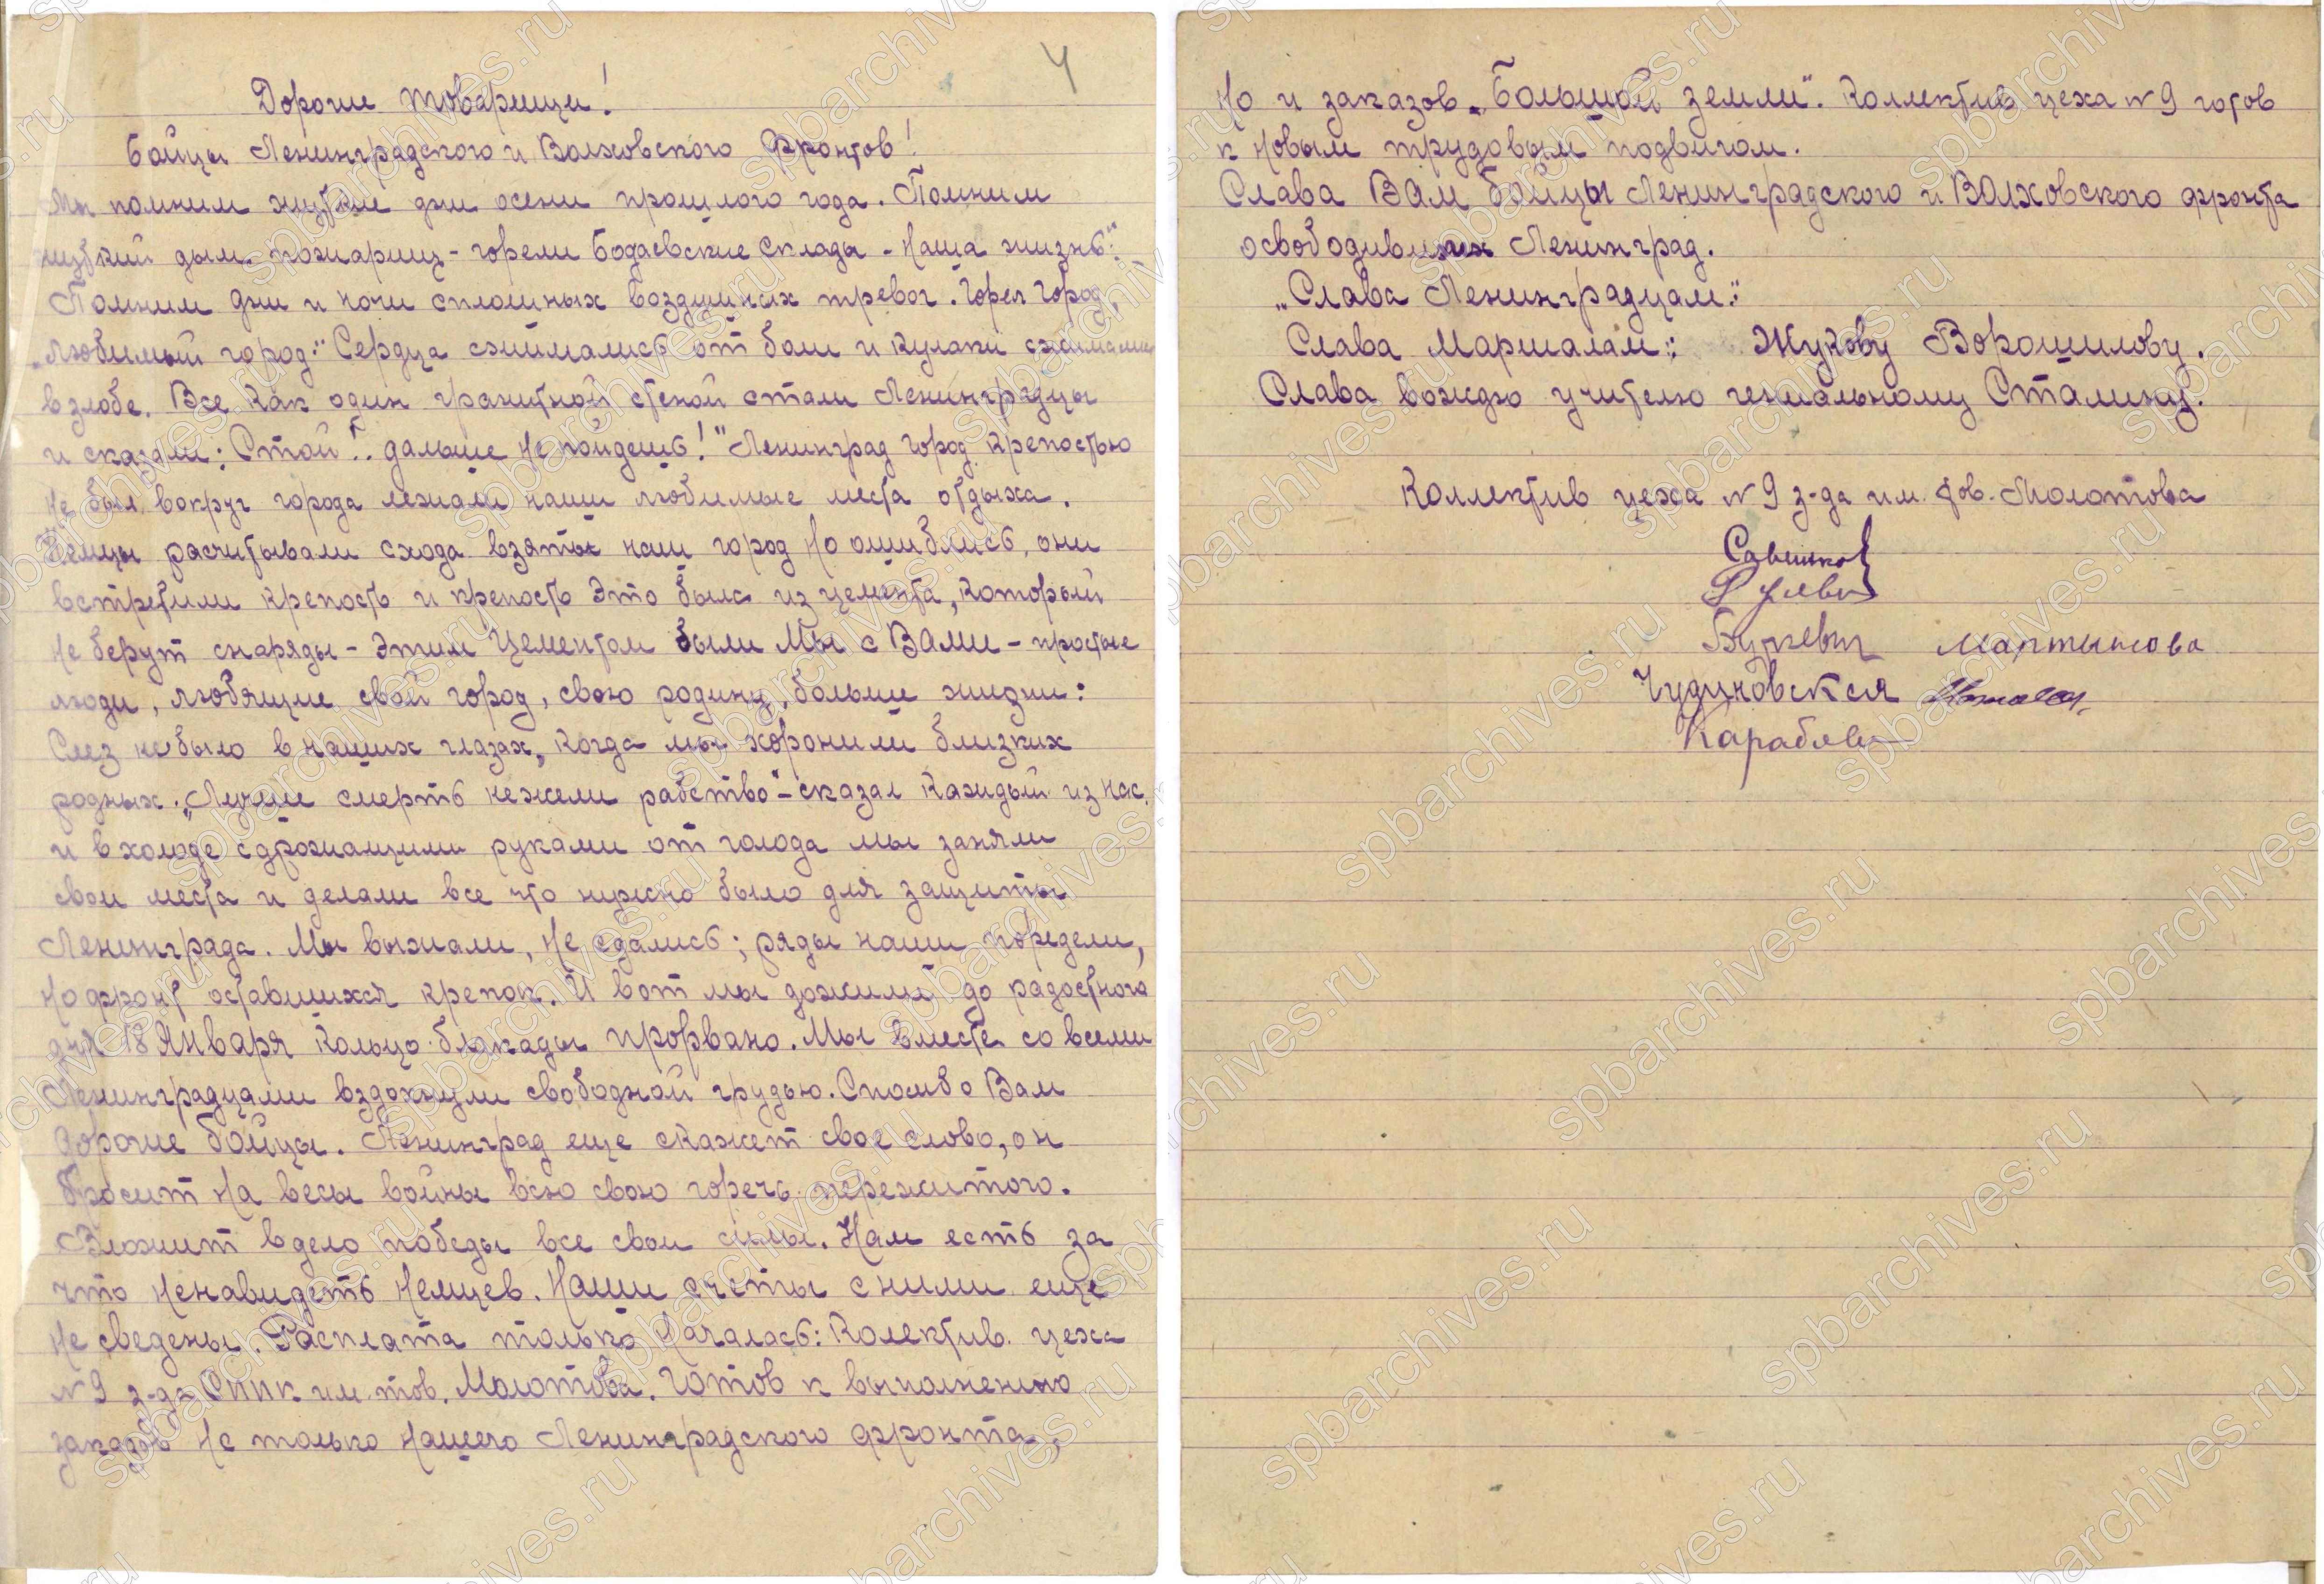 4
Дорогие товарищи!
Бойцы Ленинградского и Волховского фронтов!
Мы помним жуткие дни осени прошлого года. Помним
жуткий дым пожарищ – горели Бодаевские склады – наша жизнь."
Помним дни и ночи сплошных воздушных тревог. Горел город,
"любимый город." Сердца сжимались от боли и кулаки сжимались
в злобе. Все как один гранитной стеной стали Ленинградцы
и сказали: Стой!.. дальше не пойдешь!" Ленинград город крепостью
не был, вокруг города лежали наши любимые места отдыха.
Немцы расчитывали схода взять наш город но ошиблись, они
встретили крепость и крепость это была из цемента, который
не берут снаряды – этим цементом были Мы с Вами – простые
люди, любящие свой город, свою родину, больше жизни:
Слез не было в наших глазах, когда мы хоронили близких
родных. „Лучше смерть нежели рабство" – сказал каждый из нас.
и в холоде с дрожащими руками от голода мы заняли
свои места и делали все что нужно было для защиты
Ленинграда. Мы выжали, не сдались; ряды наши поредели,
но фронт оставшихся крепок. И вот мы дожили до радостного
дня 18 Января кольцо блокады прорвано. Мы вместе со всеми
Ленинградцами вздохнули свободной грудью. Спасибо Вам
дорогие бойцы. Ленинград еще скажет свое слово, он
бросит на весы войны всю свою горечь пережитого.
Вложит в дело победы все свои силы. Нам есть за
что ненавидеть немцев. Наши счеты с ними еще
не сведены. Расплата только началась: Колектив цеха
№ 9 з-да СППК им. тов. Молотова. Готов к выполнению
заказов не только нашего Ленинградского фронта,
но и заказов „Большой земли". Коллектив цеха № 9 готов
к новым трудовым подвигам.
Слава Вам бойцы Ленинградского и Волховского фронта
освободивших Ленинград.
„Слава Ленинградцам."
Слава Маршалам: Жукову Ворошилову.
Слава вождю учителю гениальному Сталину.
Коллектив цеха № 9 з-да им. тов. Молотова
Буцевич Мартынова
Чудиновская
spbarchives.ru